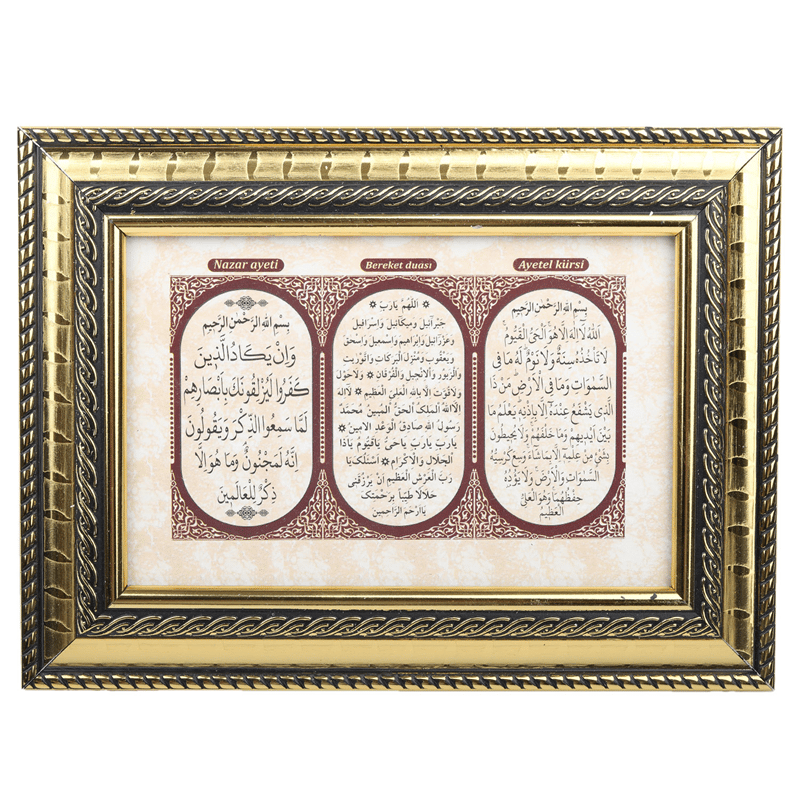 Nazar ayeti
بِسْمِ اللهِ الرَّحْمٰنِ الرَّحِيمِ
وَاِنْ يَكَادُ الَّذِينَ
كَفَرُوا لَيُزْلِقُونَكَ بِاَبْصَارِهِمْ
لَمَّا سَمِعُوا الذِّكْرَ وَيَقُولُونَ
اِنَّهُ لَمَجْنُونٌ وَمَا هُوَ اِلَّا
ذِكْرٌ لِلْعَالَمِينَ
Bereket duası
اَللّٰهُمَّ يَارَبَّ
جَبْرَآئِيلَ وَمِيكَآئِيلَ وَاِسْرَافِيلَ
وَعَزْرَآئِيلَ وَاِبْرَاهِيمَ وَاِسْمَعِيلَ وَاِسْحٰقَ
وَيَعْقُوبَ وَمُنْزِلَ الْبَرَكَاتِ وَالتَّوْرٰيةِ
وَالزَّبُورِ وَالْاِنْجِيلِ وَالْفُرْقَانِ وَلَاحَوْلَ
وَلَاقُوَّةَ اِلَّا بِاللهِ الْعَلِىِّ الْعَظِيمِ لَااِلٰهَ
اِلَّا اللهُ الْمَلِكُ الْحَقُّ الْمُبِينُ مُحَمَّدٌ
رَسُولُ اللهِ صَادِقُ الْوَعْدِ الْاَمِينِ
يَارَبِّ يَارَبِّ يَاحَىُّ يَاقَيُّومُ يَاذَا
الْجَلَالِ وَالْاِكْرَامِ اَسْئَلُكَ يَا
رَبَّ الْعَرْشِ الْعَظِيمِ اَنْ يَرْزُقَنِى
حَلَالًا طَيِّبًا بِرَحْمَتِكَ
يَااَرْحَمَ الرَّاحِمِينَ
Ayetel kürsi
بِسْمِ اللهِ الرَّحْمٰنِ الرَّحِيمِ
اَللهُ لَااِلٰهَ اِلَّا هُوَ الْحَىُّ الْقَيُّومُ
لَا تَأْخُذُهُ سِنَةٌ وَلَا نَوْمٌ لَهُ مَا فِى
السَّمٰوَاتِ وَمَا فِى الْاَرْضِ مَنْ ذَا
الَّذِى يَشْفَعُ عِنْدَهُ اِلَّا بِاِذْنِهِ يَعْلَمُ مَا
بَيْنَ اَيْدِيهِمْ وَمَا خَلْفَهُمْ وَلَا يُحِيطُونَ
بِشَىْءٍ مِنْ عِلْمِهِ اِلَّا بِمَا شَاءَ وَسِعَ كُرْسِيُّهُ
السَّمٰوَاتِ وَالْاَرْضَ وَلَا يَؤُدُهُ
حِفْظُهُمَا وَهُوَ الْعَلِىُّ
الْعَظِيمُ